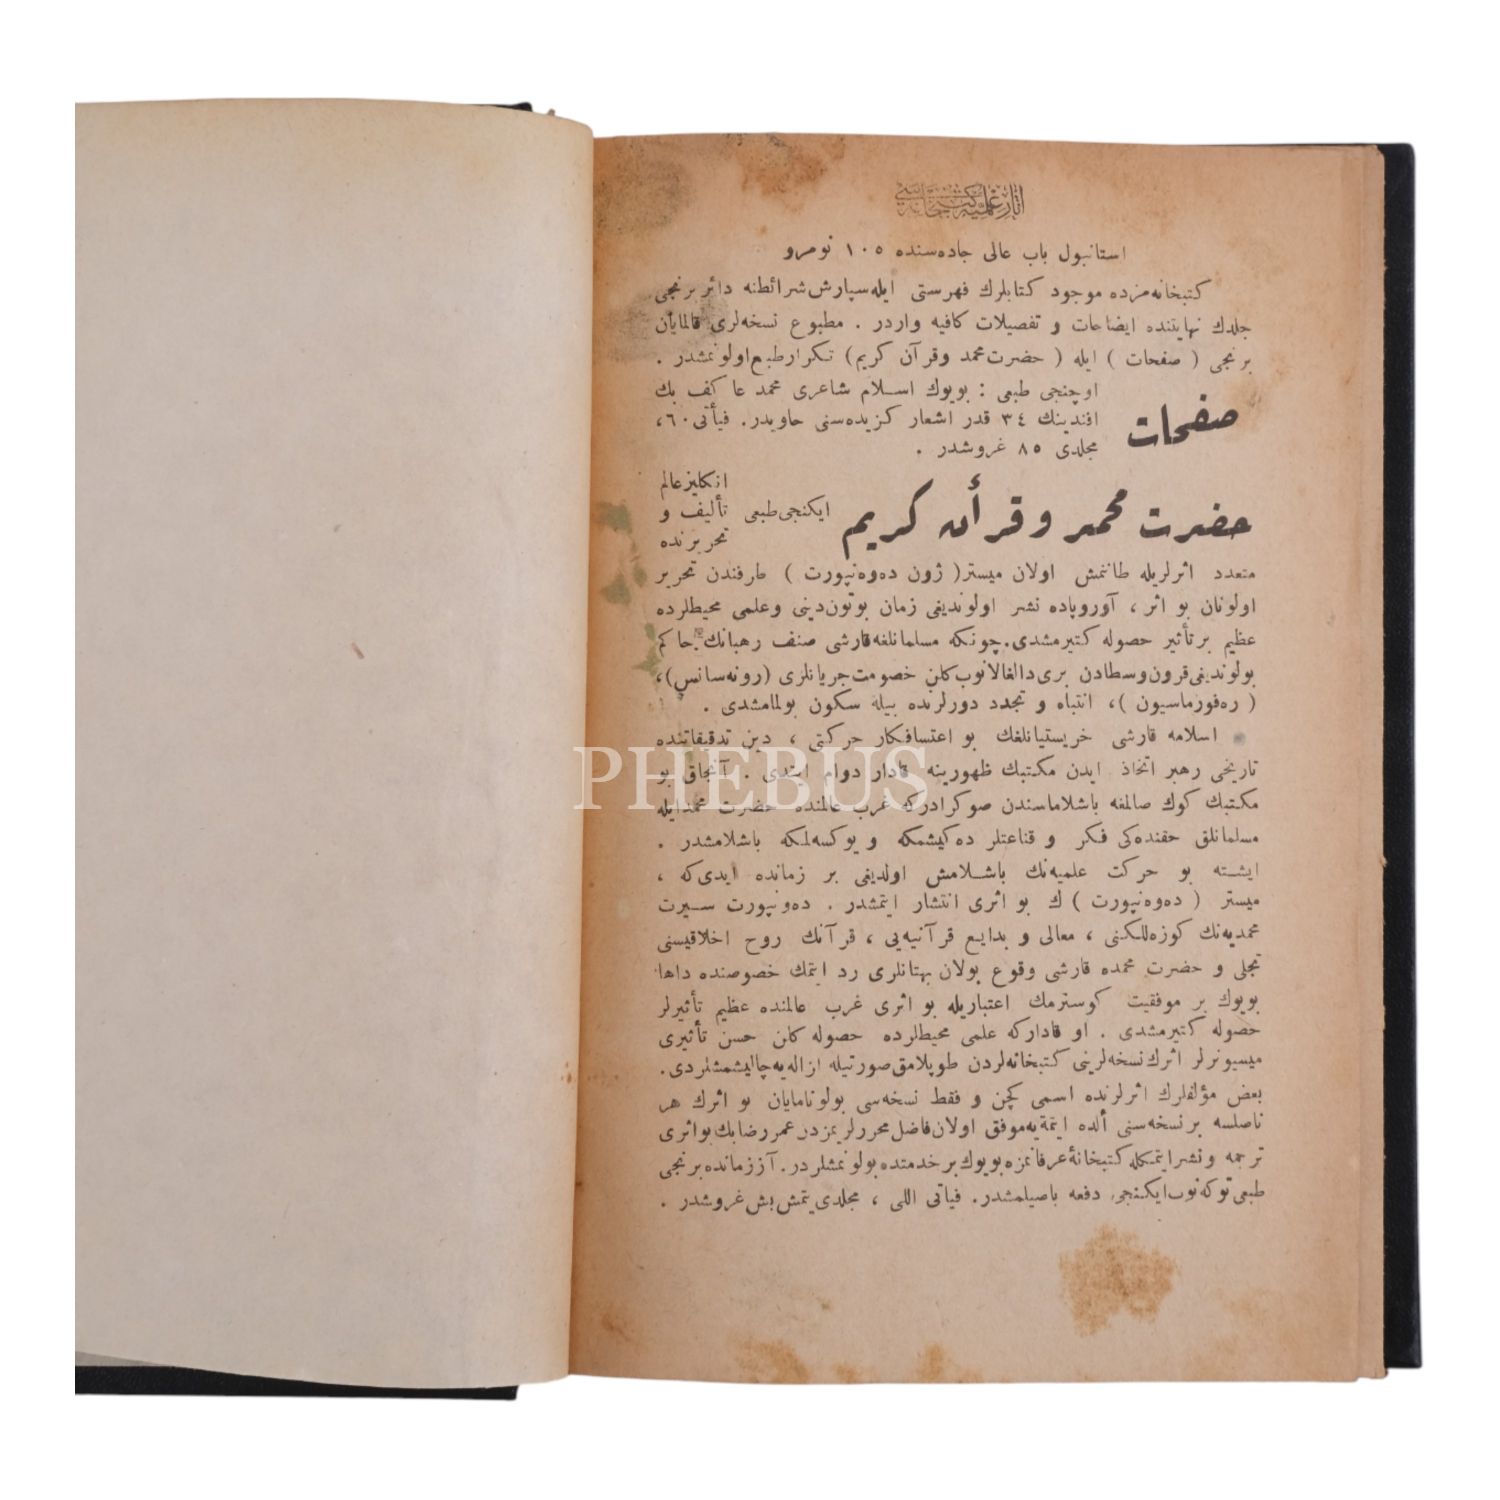 آثار علمیه کتبخانه‌سی
استانبول باب عالی جاده‌سنده ١٠٥ نومرو
کتبخانه‌مزده موجود کتابلرك فهرستی ایله سپارش شرائطنه دائر برنجی
جلدك نهایتنده ایضاحات و تفصیلات کافیه واردر . مطبوع نسخه‌لری قالمایان
برنجی ( صفحات ) ایله ( حضرت محمد وقرآن کریم ) تکرار طبع اولونمشدر .
صفحات
اوچنجی طبعی : بویوك اسلام شاعری محمد عاکف بك
افندینك ٣٤ قدر اشعار کزیده‌سنی حاویدر. فیأتی ٦٠،
مجلدی ٨٥ غروشدر .
حضرت محمد وقرآن کریم
ایکنجی طبعی
انکلیز عالم
تألیف و
تحریرنده
متعدد اثرلریله طانمش اولان میستر( ژون ده‌وه‌نپورت ) طرفندن تحریر
اولونان بو اثر ، آوروپاده نشر اولوندیغی زمان بوتون‌دینی وعلمی محیطلرده
عظیم برتأثیر حصوله کتیرمشدی. چونکه مسلمانلغه قارشی صنف رهبانك حاکم
بولوندیغی قرون وسطادن بری دالغالانوب کلن خصومت جریانلری (رونه‌سانس)،
( ره‌فورماسیون )، انتباه و تجدد دورلرنده بیله سکون بولمامشدی .
اسلامه قارشی خریستیانلغك بو اعتسافکار حرکتی ، دین تدقیقاتنده
تاریخی رهبر اتخاذ ایدن مکتبك ظهورینه قادار دوام ایتدی . آنجاق بو
مکتبك کوك صالمغه باشلاماسندن صوکرادرکه غرب عالمنده حضرت محمدایله
مسلمانلق حقنده‌کی فکر و قناعتلر ده‌کیشمکه و یوکسه‌لمکه باشلامشدر .
ایشته بو حرکت علمیه‌نك باشلامش اولدیغی بر زمانده ایدی‌که ،
میستر ( ده‌وه‌نپورت ) ك بو اثری انتشار ایتمشدر . ده‌ونپورت سیرت
محمدیه‌نك کوزه‌للکنی ، معالی و بدایع قرآنیه‌یی ، قرآنك روح اخلاقیسنی
تجلی و حضرت محمده قارشی وقوع بولان بهتانلری رد ایتمك خصوصنده داها
بویوك بر موفقیت کوسترمك اعتباریله بو اثری غرب عالمنده عظیم تأثیرلر
حصوله کتیرمشدی . او قادارکه علمی محیطلرده حصوله کلن حسن تأثیری
میسیونرلر اثرك نسخه‌لرینی کتبخانه‌لردن طوپلامق صورتیله ازاله‌یه چالیشمشلردی.
بعض مؤلفلرك اثرلرنده اسمی کچن و فقط نسخه‌سی بولونامایان بو اثرك هر
ناصلسه برنسخه‌سنی ألده ایتمه‌یه موفق اولان فاضل محررلریمزدن عمر رضا بك بو اثری
ترجمه ونشر ایتمکله کتبخانهٔ عرفانمزه بویوك بر خدمتده بولونمشلردر. آز زمانده برنجی
طبعی توکه‌نوب ایکنجی دفعه باصیلمشدر. فیاتی اللی ، مجلدی یتمش بش غروشدر .
PHEBUS